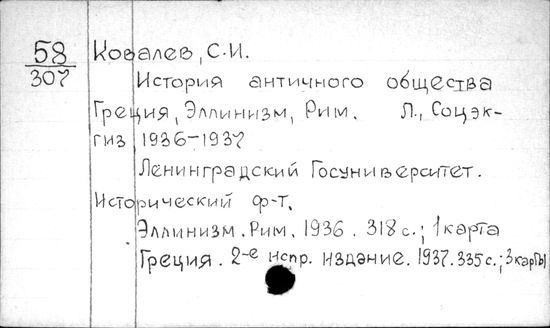 58
307
Ковалев, С.И.
История античного общества
Греция, Эллинизм, Рим. Л., Соцэк-
гиз 1936-1937
Ленинградский Госуниверситет.
Исторический ф-т.
Эллинизм. Рим. 1936. 318 с.; 1 карта
Греция. 2-е испр. издание. 1937. 335 с.; 3 карты